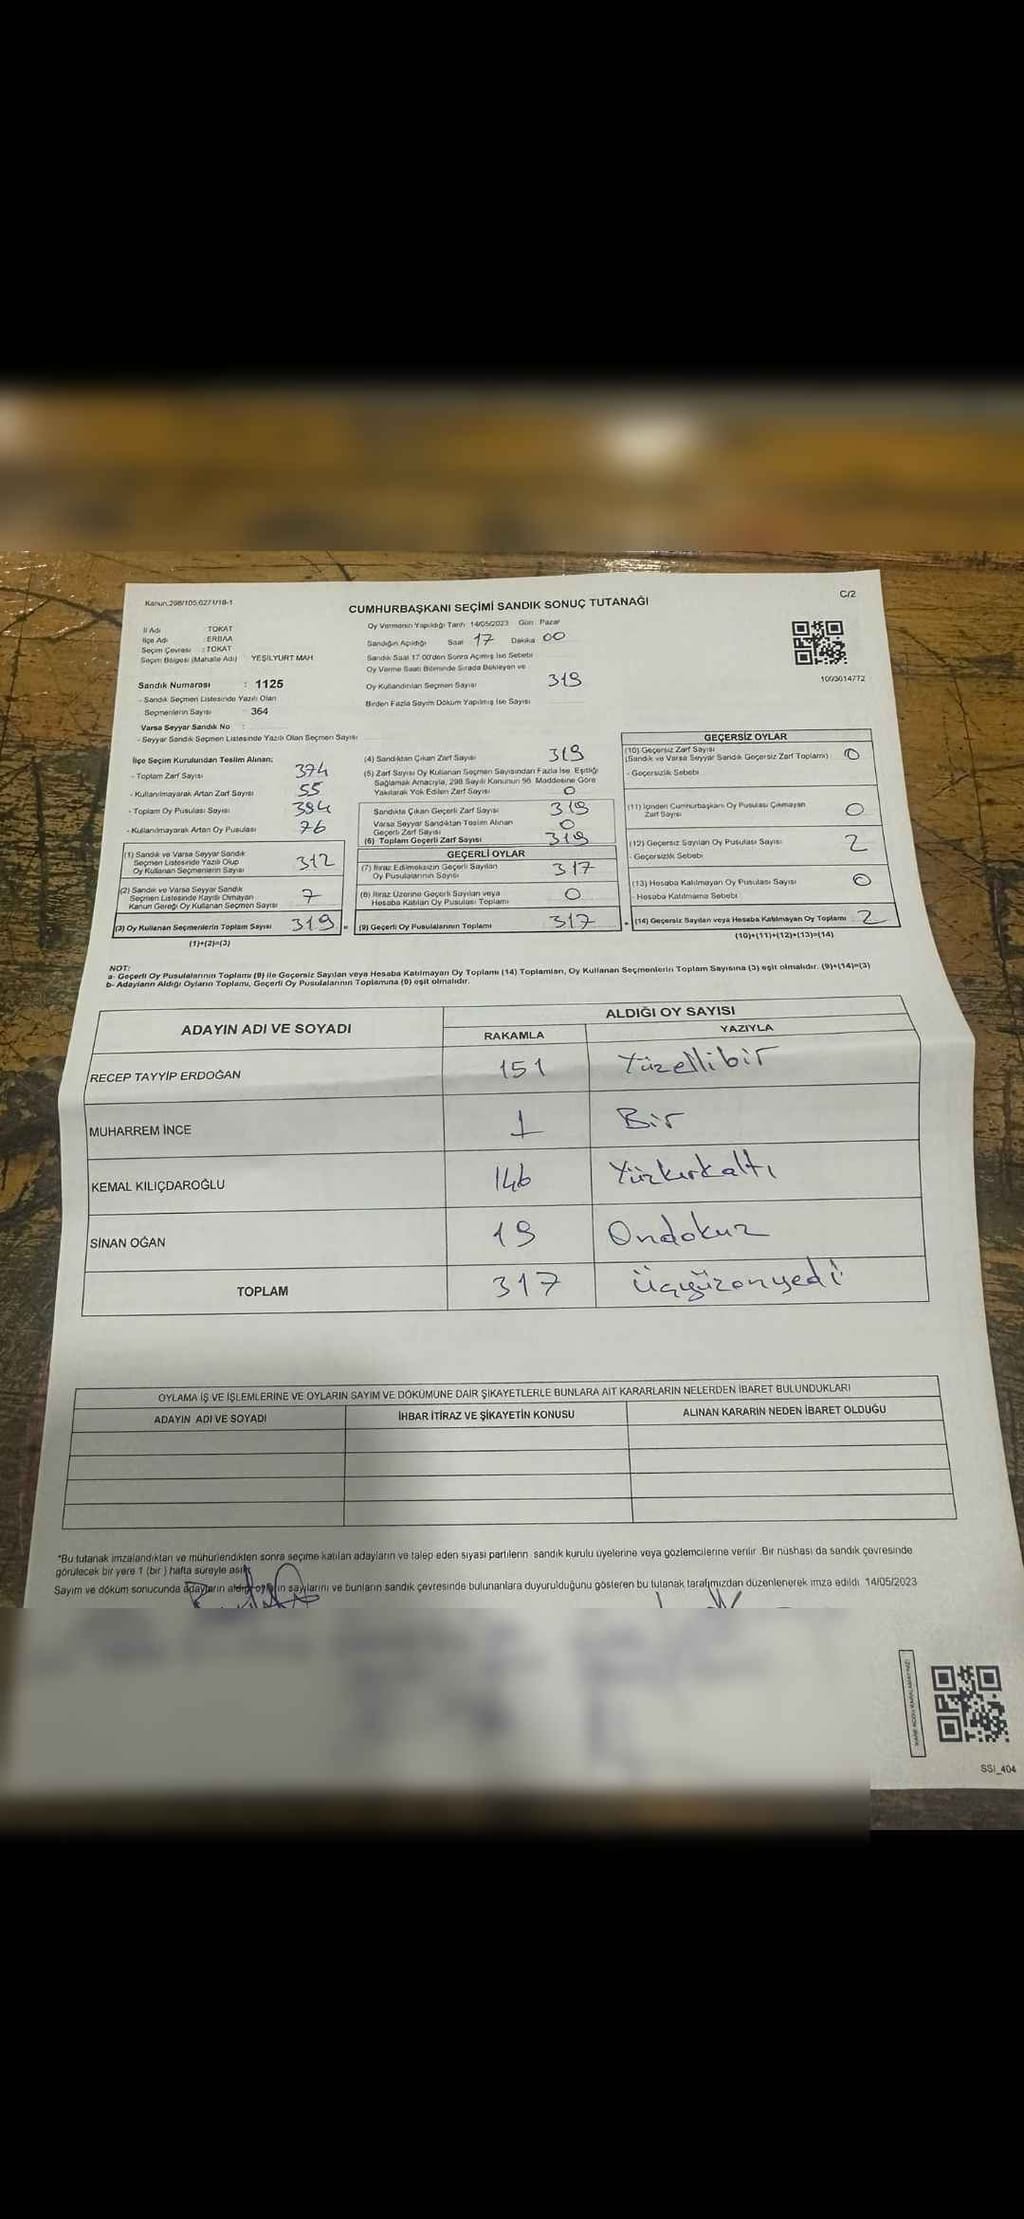 Kanun:298/105,6271/18-1
C/2
CUMHURBAŞKANI SEÇİMİ SANDIK SONUÇ TUTANAĞI
İl Adı : TOKAT
İlçe Adı : ERBAA
Seçim Çevresi : TOKAT
Seçim Bölgesi (Mahalle Adı) YEŞİLYURT MAH
Oy Vermenin Yapıldığı Tarih 14/05/2023 Gün Pazar
Sandığın Açıldığı Saat 17 Dakika 00
Sandık Saat 17 00'den Sonra Açılmış İse Sebebi
Oy Verme Saati Bitiminde Sırada Bekleyen ve
Oy Kullandırılan Seçmen Sayısı 319
Birden Fazla Sayım Döküm Yapılmış İse Sayısı
1003014772
Sandık Numarası : 1125
- Sandık Seçmen Listesinde Yazılı Olan
Seçmenlerin Sayısı 364
Varsa Seyyar Sandık No :
- Seyyar Sandık Seçmen Listesinde Yazılı Olan Seçmen Sayısı
İlçe Seçim Kurulundan Teslim Alınan:
- Toplam Zarf Sayısı 374
- Kullanılmayarak Artan Zarf Sayısı 55
- Toplam Oy Pusulası Sayısı 394
- Kullanılmayarak Artan Oy Pusulası 76
(1) Sandık ve Varsa Seyyar Sandık
Seçmen Listesinde Yazılı Olup
Oy Kullanan Seçmenlerin Sayısı 312
(2) Sandık ve Varsa Seyyar Sandık
Seçmen Listesinde Kayıtlı Olmayan
Kanun Gereği Oy Kullanan Seçmen Sayısı 7
(3) Oy Kullanan Seçmenlerin Toplam Sayısı 319 =
(1)+(2)=(3)
(4) Sandıktan Çıkan Zarf Sayısı 319
(5) Zarf Sayısı Oy Kullanan Seçmen Sayısından Fazla İse Eşitliği
Sağlamak Amacıyla, 298 Sayılı Kanunun 98 Maddesine Göre
Yakılarak Yok Edilen Zarf Sayısı 0
Sandıkta Çıkan Geçerli Zarf Sayısı 319
Varsa Seyyar Sandıktan Teslim Alınan
Geçerli Zarf Sayısı 0
(6) Toplam Geçerli Zarf Sayısı 319
GEÇERLİ OYLAR
(7) İtiraz Edilmeksizin Geçerli Sayılan
Oy Pusulalarının Sayısı 317
(8) İtiraz Üzerine Geçerli Sayılan veya
Hesaba Katılan Oy Pusulası Toplamı 0
(9) Geçerli Oy Pusulalarının Toplamı 317 +
GEÇERSİZ OYLAR
(10) Geçersiz Zarf Sayısı
(Sandık ve Varsa Seyyar Sandık Geçersiz Zarf Toplamı) 0
- Geçersizlik Sebebi
(11) İçinden Cumhurbaşkanı Oy Pusulası Çıkmayan
Zarf Sayısı 0
(12) Geçersiz Sayılan Oy Pusulası Sayısı 2
- Geçersizlik Sebebi
(13) Hesaba Katılmayan Oy Pusulası Sayısı 0
- Hesaba Katılmama Sebebi
(14) Geçersiz Sayılan veya Hesaba Katılmayan Oy Toplamı 2
(10)+(11)+(12)+(13)=(14)
NOT:
a- Geçerli Oy Pusulalarının Toplamı (9) ile Geçersiz Sayılan veya Hesaba Katılmayan Oy Toplamı (14) Toplamları, Oy Kullanan Seçmenlerin Toplam Sayısına (3) eşit olmalıdır. (9)+(14)=(3)
b- Adayların Aldığı Oyların Toplamı, Geçerli Oy Pusulalarının Toplamına (9) eşit olmalıdır.
ADAYIN ADI VE SOYADI
ALDIĞI OY SAYISI
RAKAMLA YAZIYLA
RECEP TAYYİP ERDOĞAN 151 Yüzellibir
MUHARREM İNCE 1 Bir
KEMAL KILIÇDAROĞLU 146 Yüzkırkaltı
SİNAN OĞAN 19 Ondokuz
TOPLAM 317 Üçyüzonyedi
OYLAMA İŞ VE İŞLEMLERİNE VE OYLARIN SAYIM VE DÖKÜMÜNE DAİR ŞİKAYETLERLE BUNLARA AİT KARARLARIN NELERDEN İBARET BULUNDUKLARI
ADAYIN ADI VE SOYADI İHBAR İTİRAZ VE ŞİKAYETİN KONUSU ALINAN KARARIN NEDEN İBARET OLDUĞU
*Bu tutanak imzalandıktan ve mühürlendikten sonra seçime katılan adayların ve talep eden siyasi partilerin sandık kurulu üyelerine veya gözlemcilerine verilir. Bir nüshası da sandık çevresinde
görülecek bir yere 1 (bir) hafta süreyle asılır.
Sayım ve döküm sonucunda adayların aldığı oyların sayılarını ve bunların sandık çevresinde bulunanlara duyurulduğunu gösteren bu tutanak tarafımızdan düzenlenerek imza edildi 14/05/2023
SSI_404